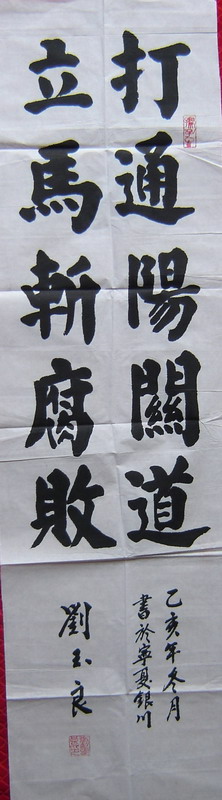 打通陽關道
立馬斬腐敗
乙亥年冬月
書於寧夏銀川
劉玉良